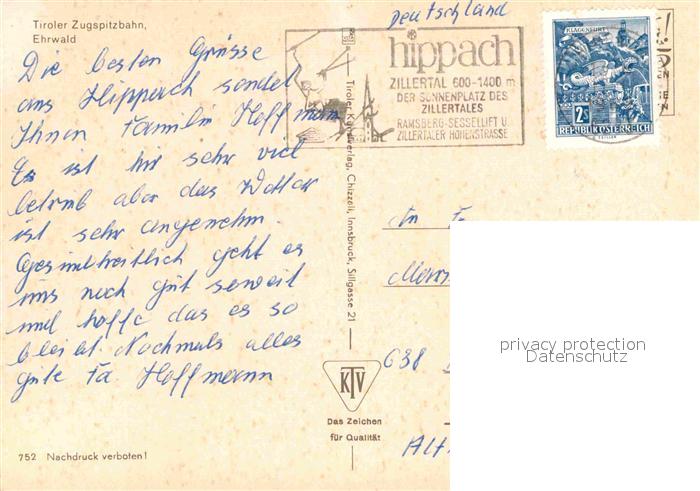 Tiroler Zugspitzbahn,
Ehrwald
Die besten Grüsse
aus Hippach sendet
Ihnen Familie Hoffmann
Es ist hir sehr viel
betrieb aber das Wetter
ist sehr angenehm.
Gesundheitlich geht es
uns noch gut soweit
und hoffe das es so
bleibt. Nochmals alles
gute Fa. Hoffmann
752 Nachdruck verboten!
Tiroler Kunstverlag, Chizzali, Innsbruck, Sillgasse 21
KTV
Das Zeichen
für Qualität
Deutschland
hippach
ZILLERTAL 600-1400 m
DER SONNENPLATZ DES
ZILLERTALES
RAMSBERG-SESSELLIFT U.
ZILLERTALER HÖHENSTRASSE
KLAGENFURT
2S
REPUBLIK ÖSTERREICH
An Fa
638
privacy protection
Datenschutz